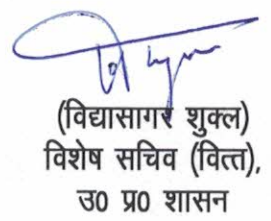 (विद्यासागर शुक्ल)
विशेष सचिव (वित्त),
उ0 प्र0 शासन